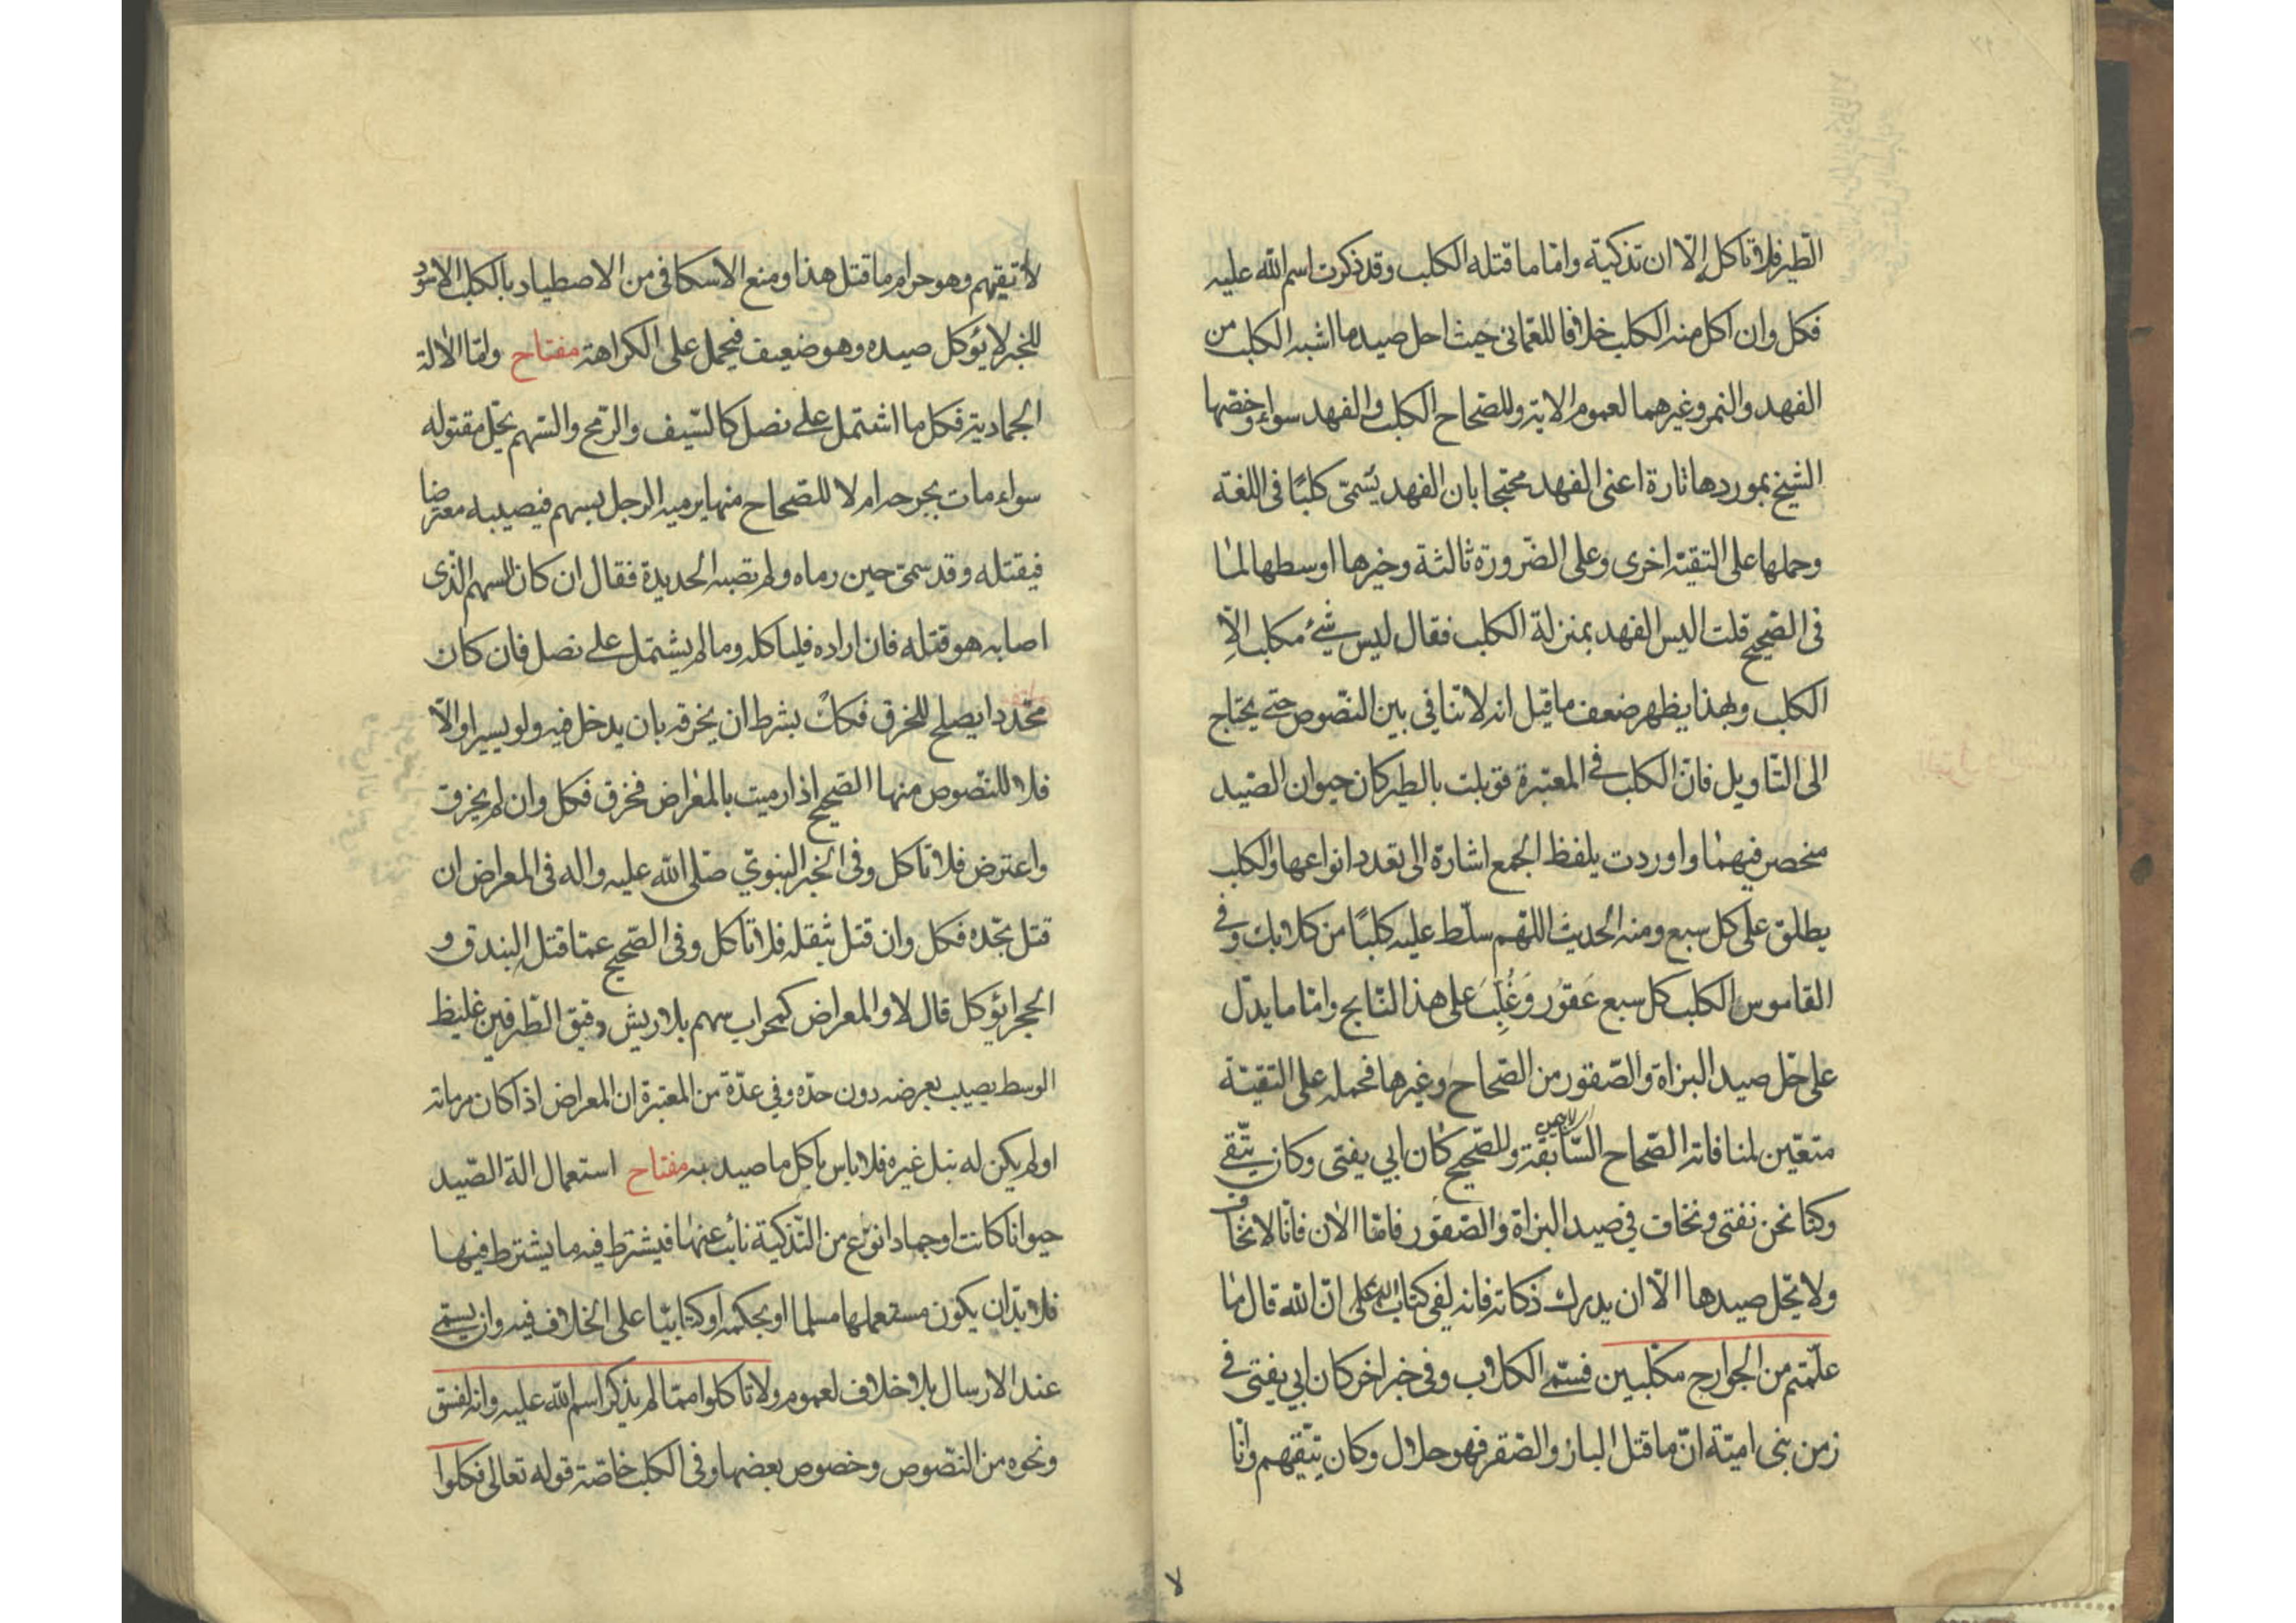 الطّير فلا تأكل إلّا ان تذكيّه وامّا ما قتله الكلب وقد ذكرت اسم الله عليه
فكل وان اكل منه الكلب خلافا للعمّانى حيث احل صيد ما اشبه الكلب من
الفهد والنمر وغيرهما لعموم الاية وللصّحاح الكلب والفهد سواء وخصّها
الشيخ بموردها تارة اعنى الفهد محتجا بان الفهد يسمّى كلبًا فى اللغة
وحملها على التقيّة اخرى وعلى الضّرورة ثالثة وخيرها اوسطها لما
فى الصّحيح قلت اليس الفهد بمنزلة الكلب فقال ليس شئ مكلب الّا
الكلب وبهذا يظهر ضعف ما قيل انه لا تنافي بين النّصوص حتى يحتاج
الى التّاويل فانّ الكلب فى المعتبرة قوبلت بالطير كان حيوان الصّيد
منحصر فيهما واوردت بلفظ الجمع اشارة الى تعدد انواعها والكلب
يطلق على كل سبع ومنه الحديث اللّهم سلّط عليه كلبًا من كلابك وفى
القاموس الكلب كل سبع عَقوُر وَغُلِبَ على هذا النّابح وامّا ما يدلّ
على حلّ صيد البزاة والصّقور من الصّحاح وغيرها فحمله على التقيّة
متعيّن لمنافاته الصّحاح السّابقة وللصّحيح كان ابي يفتى وكان يتّقى
وكنا نحن نفتى ونخاف في صيد البزاة والصّقور فامّا الان فانّا لا نخاف
ولا تحل صيدها الّا ان يدرك ذكاته فانه لفى كتاب على انّ الله قال ما
علّمتم من الجوارح مكلّبين فسمّى الكلاب وفى خبر اخر كان ابي يفتى فى
زمن بنى اميّة انّ ما قتل الباز والصّقر فهو حلال وكان يتّقيهم وانا
لا اتّقيهم وهو حرام ما قتل هذا ومنع الاسكافى من الاصطياد بالكلب الاسود
للخبر لا يؤكل صيده وهو ضعيف فيحمل على الكراهة مفتاح وامّا الالة
الجمادية فكل ما اشتمل على نصل كالسّيف والرّمح والسّهم يحلّ مقتوله
سواء مات بجرحه ام لا للصّحاح منها يرميه الرجل بسهم فيصيبه معترضا
فيقتله وقد سمّى حين رماه ولم تصبه الحديدة فقال ان كان السهم الّذى
اصابه هو قتله فان اراده فليأكله وما لم يشتمل على نصل فان كان
محدّدا يصلح للخرق فكك بشرط ان يخرقه بان يدخل فيه ولو يسيرا والّا
فلا للنّصوص منها الصّحيح اذا رميت بالمعراض فخرق فكل وان لم يخرق
واعترض فلا تأكل وفى الخبر النبويّ صلّى الله عليه واله فى المعراض ان
قتل بحدّه فكل وان قتل بثقله فلا تأكل وفى الصّحيح عمّا قتل البندق و
الحجر ايؤكل قال لا والمعراض كمحراب سهم بلا ريش دقيق الطّرفين غليظ
الوسط يصيب بعرضه دون حدّه وفي عدّة من المعتبرة ان المعراض اذا كان مرماته
او لم يكن له نبل غيره فلا باس باكل ما صيد به مفتاح استعمال الة الصّيد
حيوانا كانت او جمادا نوع من التّذكية نائب عنها فيشترط فيه ما يشترط فيها
فلا بدّ ان يكون مستعملها مسلما او بحكمه او كتابيّا على الخلاف فيه وان يسمّى
عند الارسال بلا خلاف لعموم ولا تأكلوا ممّا لم يذكر اسم الله عليه وانه لفسق
ونحوه من النّصوص وخصوص بعضها وفى الكلب خاصّة قوله تعالى فكلوا